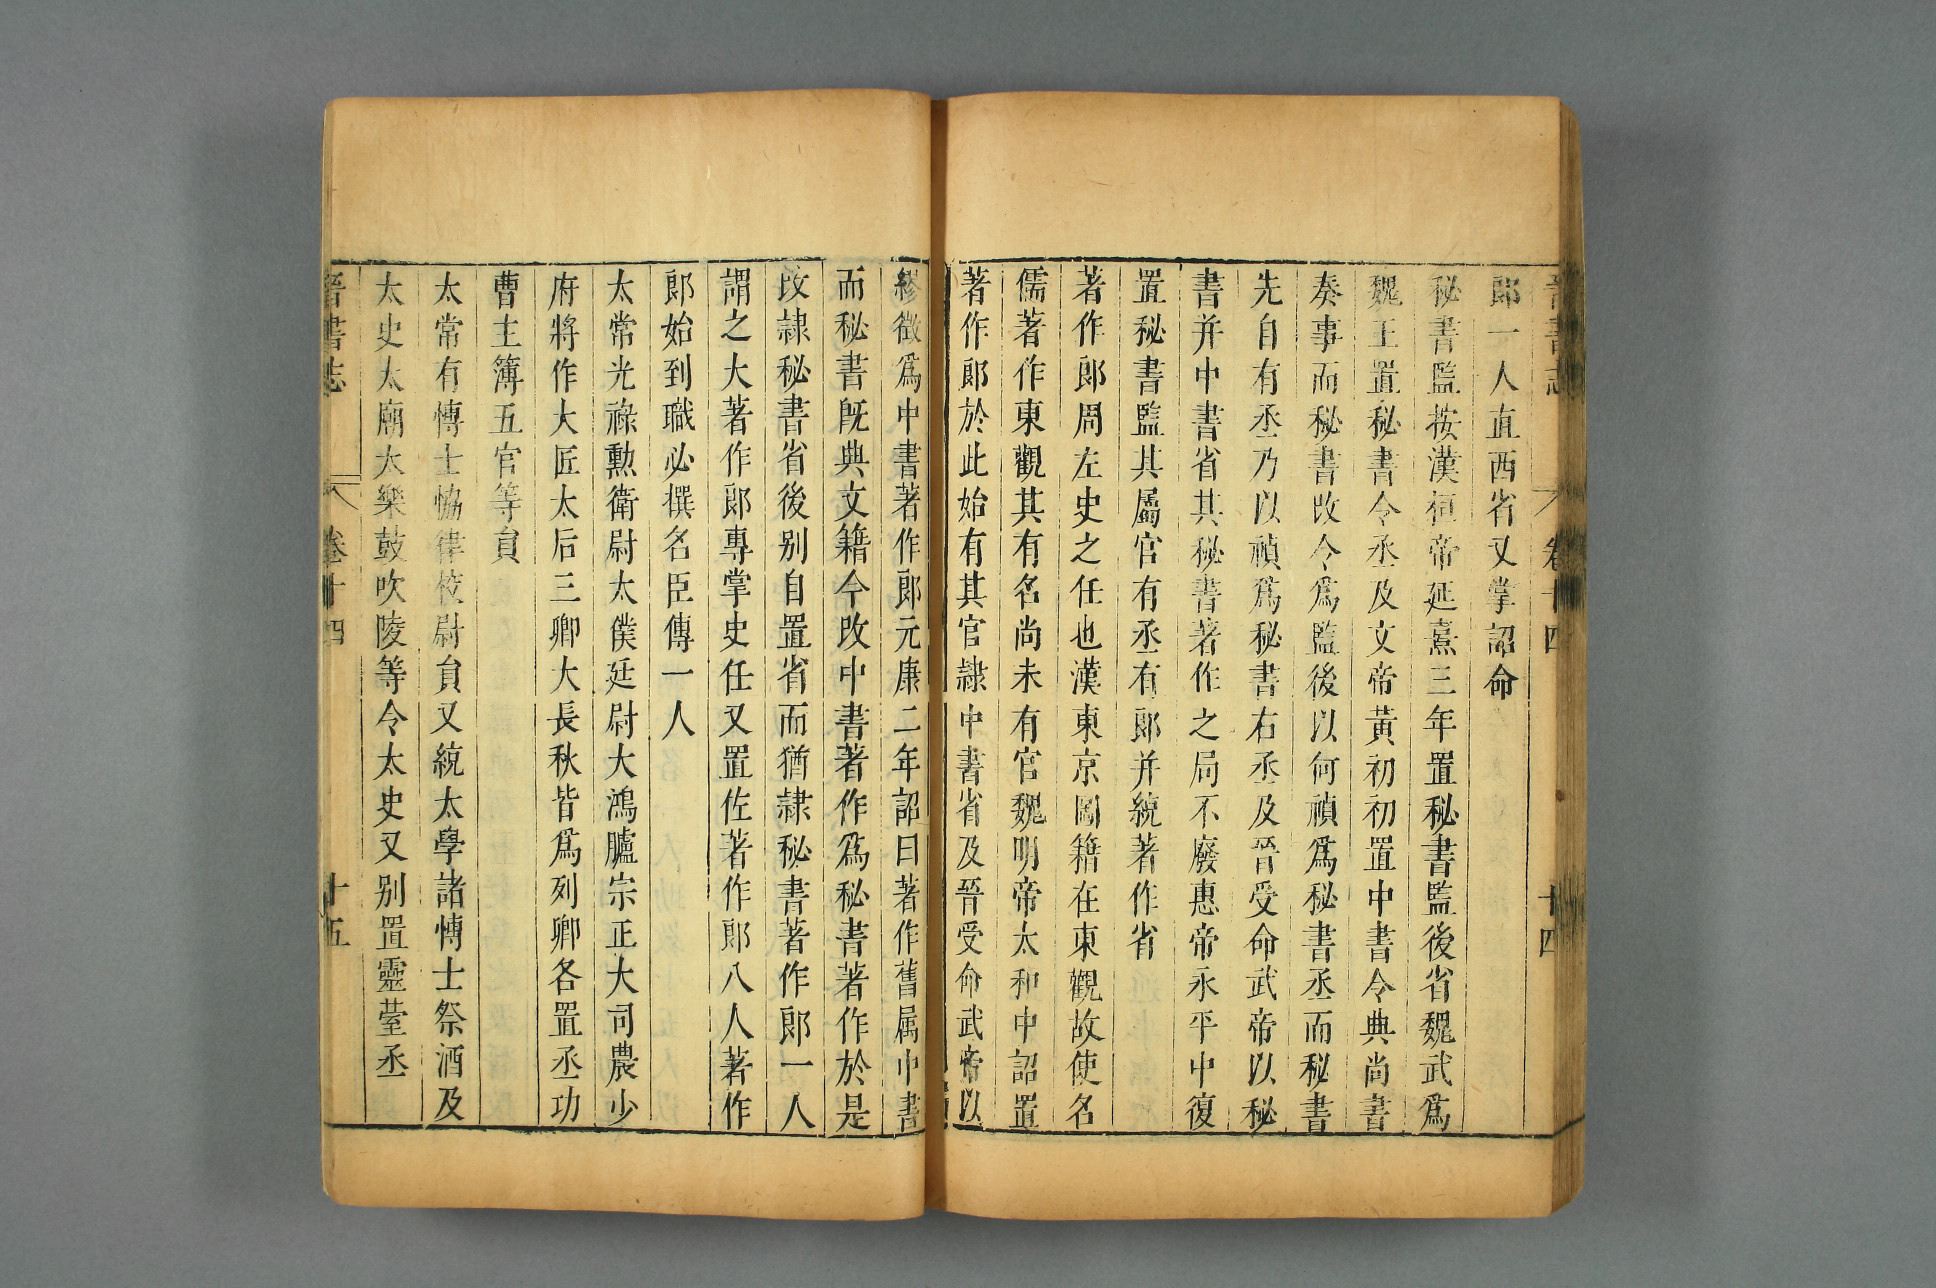 晉書志 卷十四 十四
郎一人直西省又掌詔命
秘書監按漢桓帝延熹三年置秘書監後省魏武爲
魏王置秘書令丞及文帝黃初初置中書令典尚書
奏事而秘書改令爲監後以何禎爲秘書丞而秘書
先自有丞乃以禎爲秘書右丞及晉受命武帝以秘
書并中書省其秘書著作之局不廢惠帝永平中復
置秘書監其屬官有丞有郎并統著作省
著作郎周左史之任也漢東京圖籍在東觀故使名
儒著作東觀其有名尚未有官魏明帝太和中詔置
著作郎於此始有其官隷中書省及晉受命武帝以
繆徵爲中書著作郎元康二年詔曰著作舊属中書
而秘書旣典文籍今改中書著作爲秘書著作於是
改隷秘書省後别自置省而猶隷秘書著作郎一人
謂之大著作郎專掌史任又置佐著作郎八人著作
郎始到職必撰名臣傳一人
太常光祿勳衛尉太僕廷尉大鴻臚宗正大司農少
府將作大匠太后三卿大長秋皆爲列卿各置丞功
曹主簿五官等員
太常有博士恊律校尉員又統太學諸博士祭酒及
太史太廟太樂鼓吹陵等令太史又别置靈臺丞
晉書志 卷十四 十五